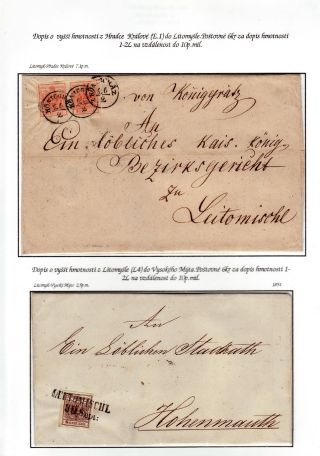 Dopis o vyšší hmotnosti z Hradce Králové (L1) do Litomyšle. Poštovné 6kr za dopis hmotnosti
1-2L na vzdálenost do 10p.mil.
Litomyšl-Hradec Králové 7.3p.m.
von Königgrätz
An
Ein löbliches kais. könig.
Bezirksgericht
Zu
Leitomischl
Dopis o vyšší hmotnosti z Litomyšle (L4) do Vysokého Mýta. Poštovné 6kr za dopis hmotnosti 1-
2L na vzdálenost do 10p.mil.
Litomyšl-Vysoké Mýto 2.5p.m.
An
Ein Löblichen Stadtrath
LEITOMISCHL
Hohenmauth